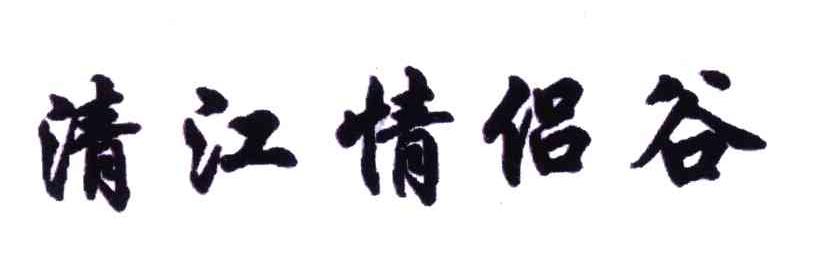 清江情侣谷